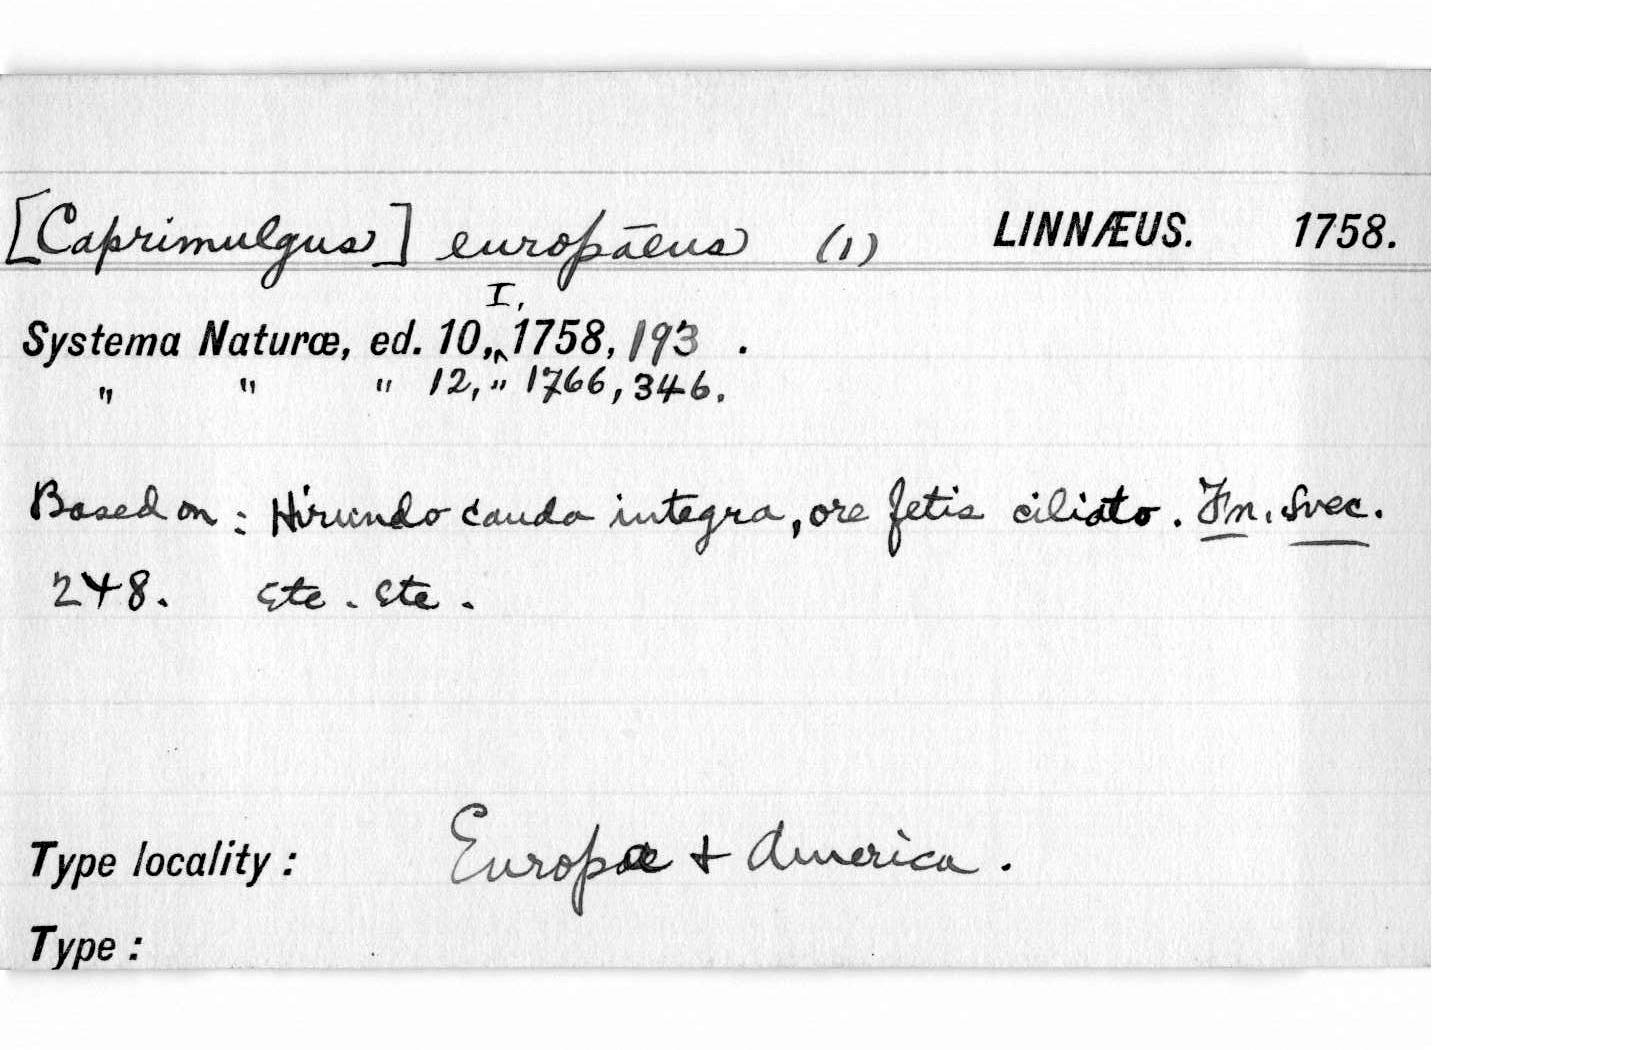 [Caprimulgus] europaeus (1) LINNÆUS. 1758.
I,
Systema Naturæ, ed. 10,‸1758, 193 .
" " " 12, " 1766, 346.
Based on : Hirundo cauda integra, ore setis ciliato. Fn. Svec.
248. Etc. Etc.
Type locality : Europa & America.
Type :